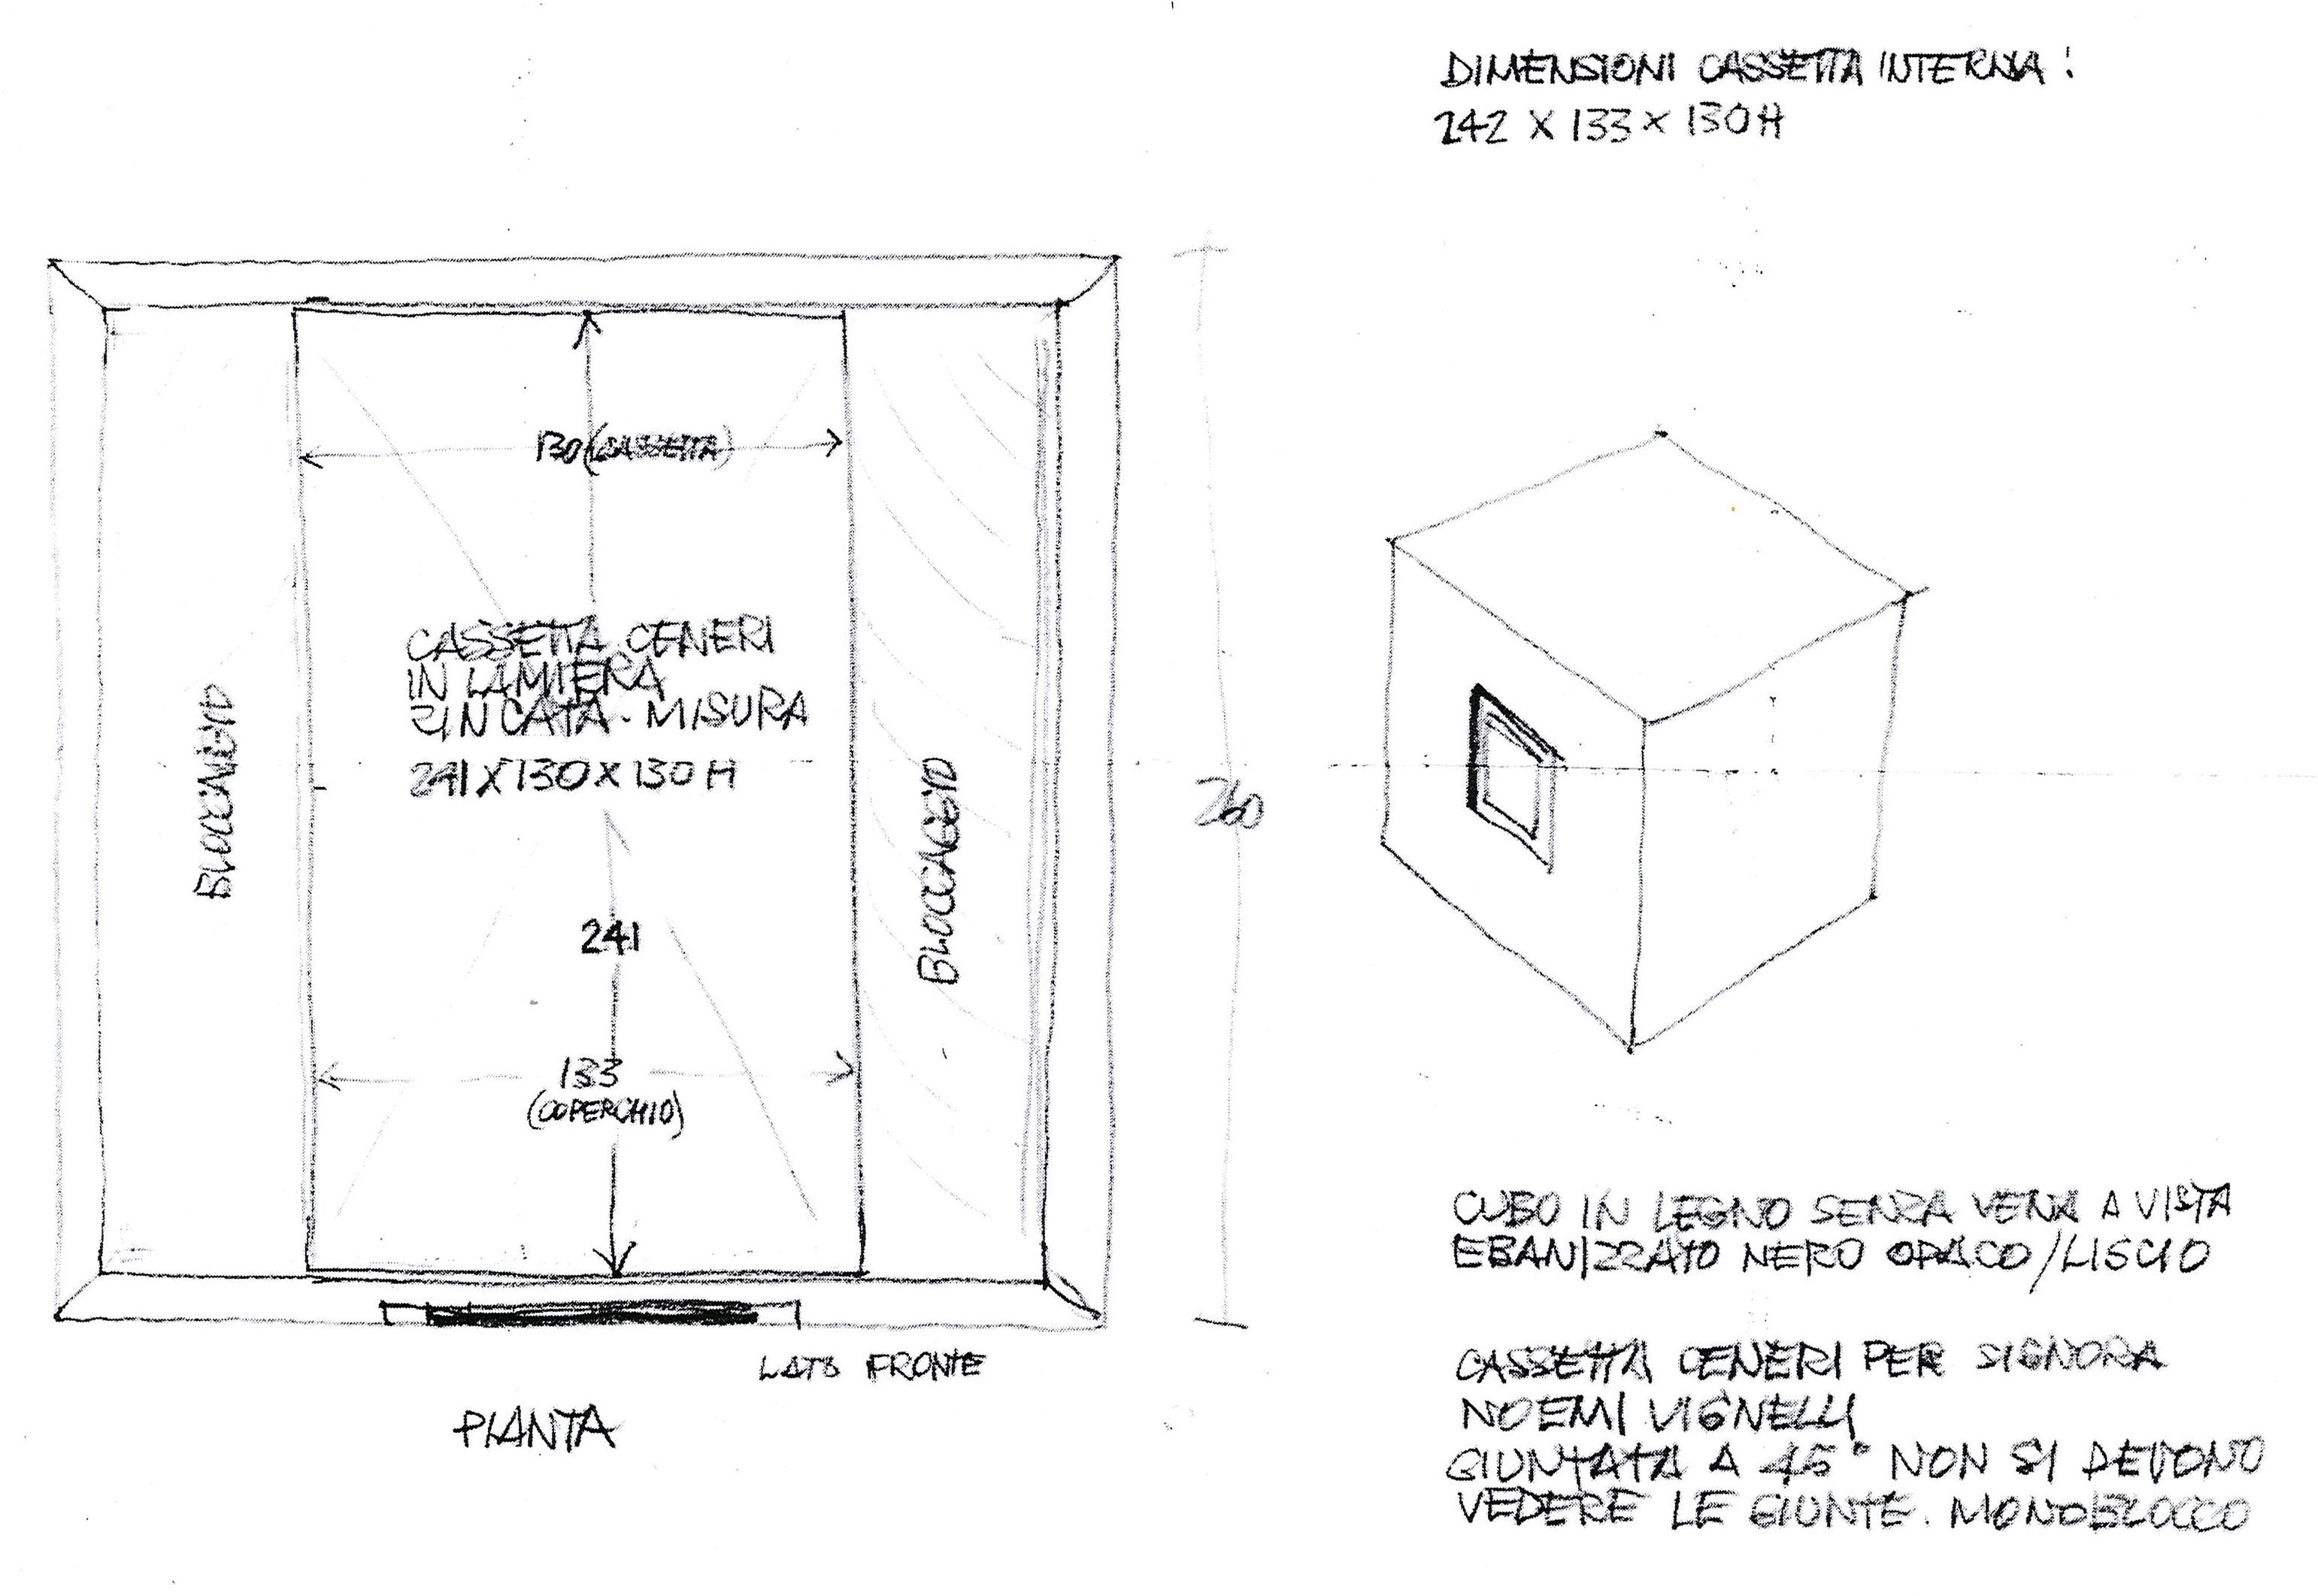 DIMENSIONI CASSETTA INTERNA:
242 X 133 X 130 H
130 (CASSETTA)
CASSETTA CENERI
IN LAMIERA
ZINCATA. MISURA
241 X 130 X 130 H
BLOCCAGGIO
BLOCCAGGIO
260
241
133
(COPERCHIO)
LATO FRONTE
PIANTA
CUBO IN LEGNO SENZA VENA A VISTA
EBANIZZATO NERO OPACO/LISCIO
CASSETTA CENERI PER SIGNORA
NOEMI VIGNELLI
GIUNTATA A 45° NON SI DEVONO
VEDERE LE GIUNTE. MONOBLOCCO